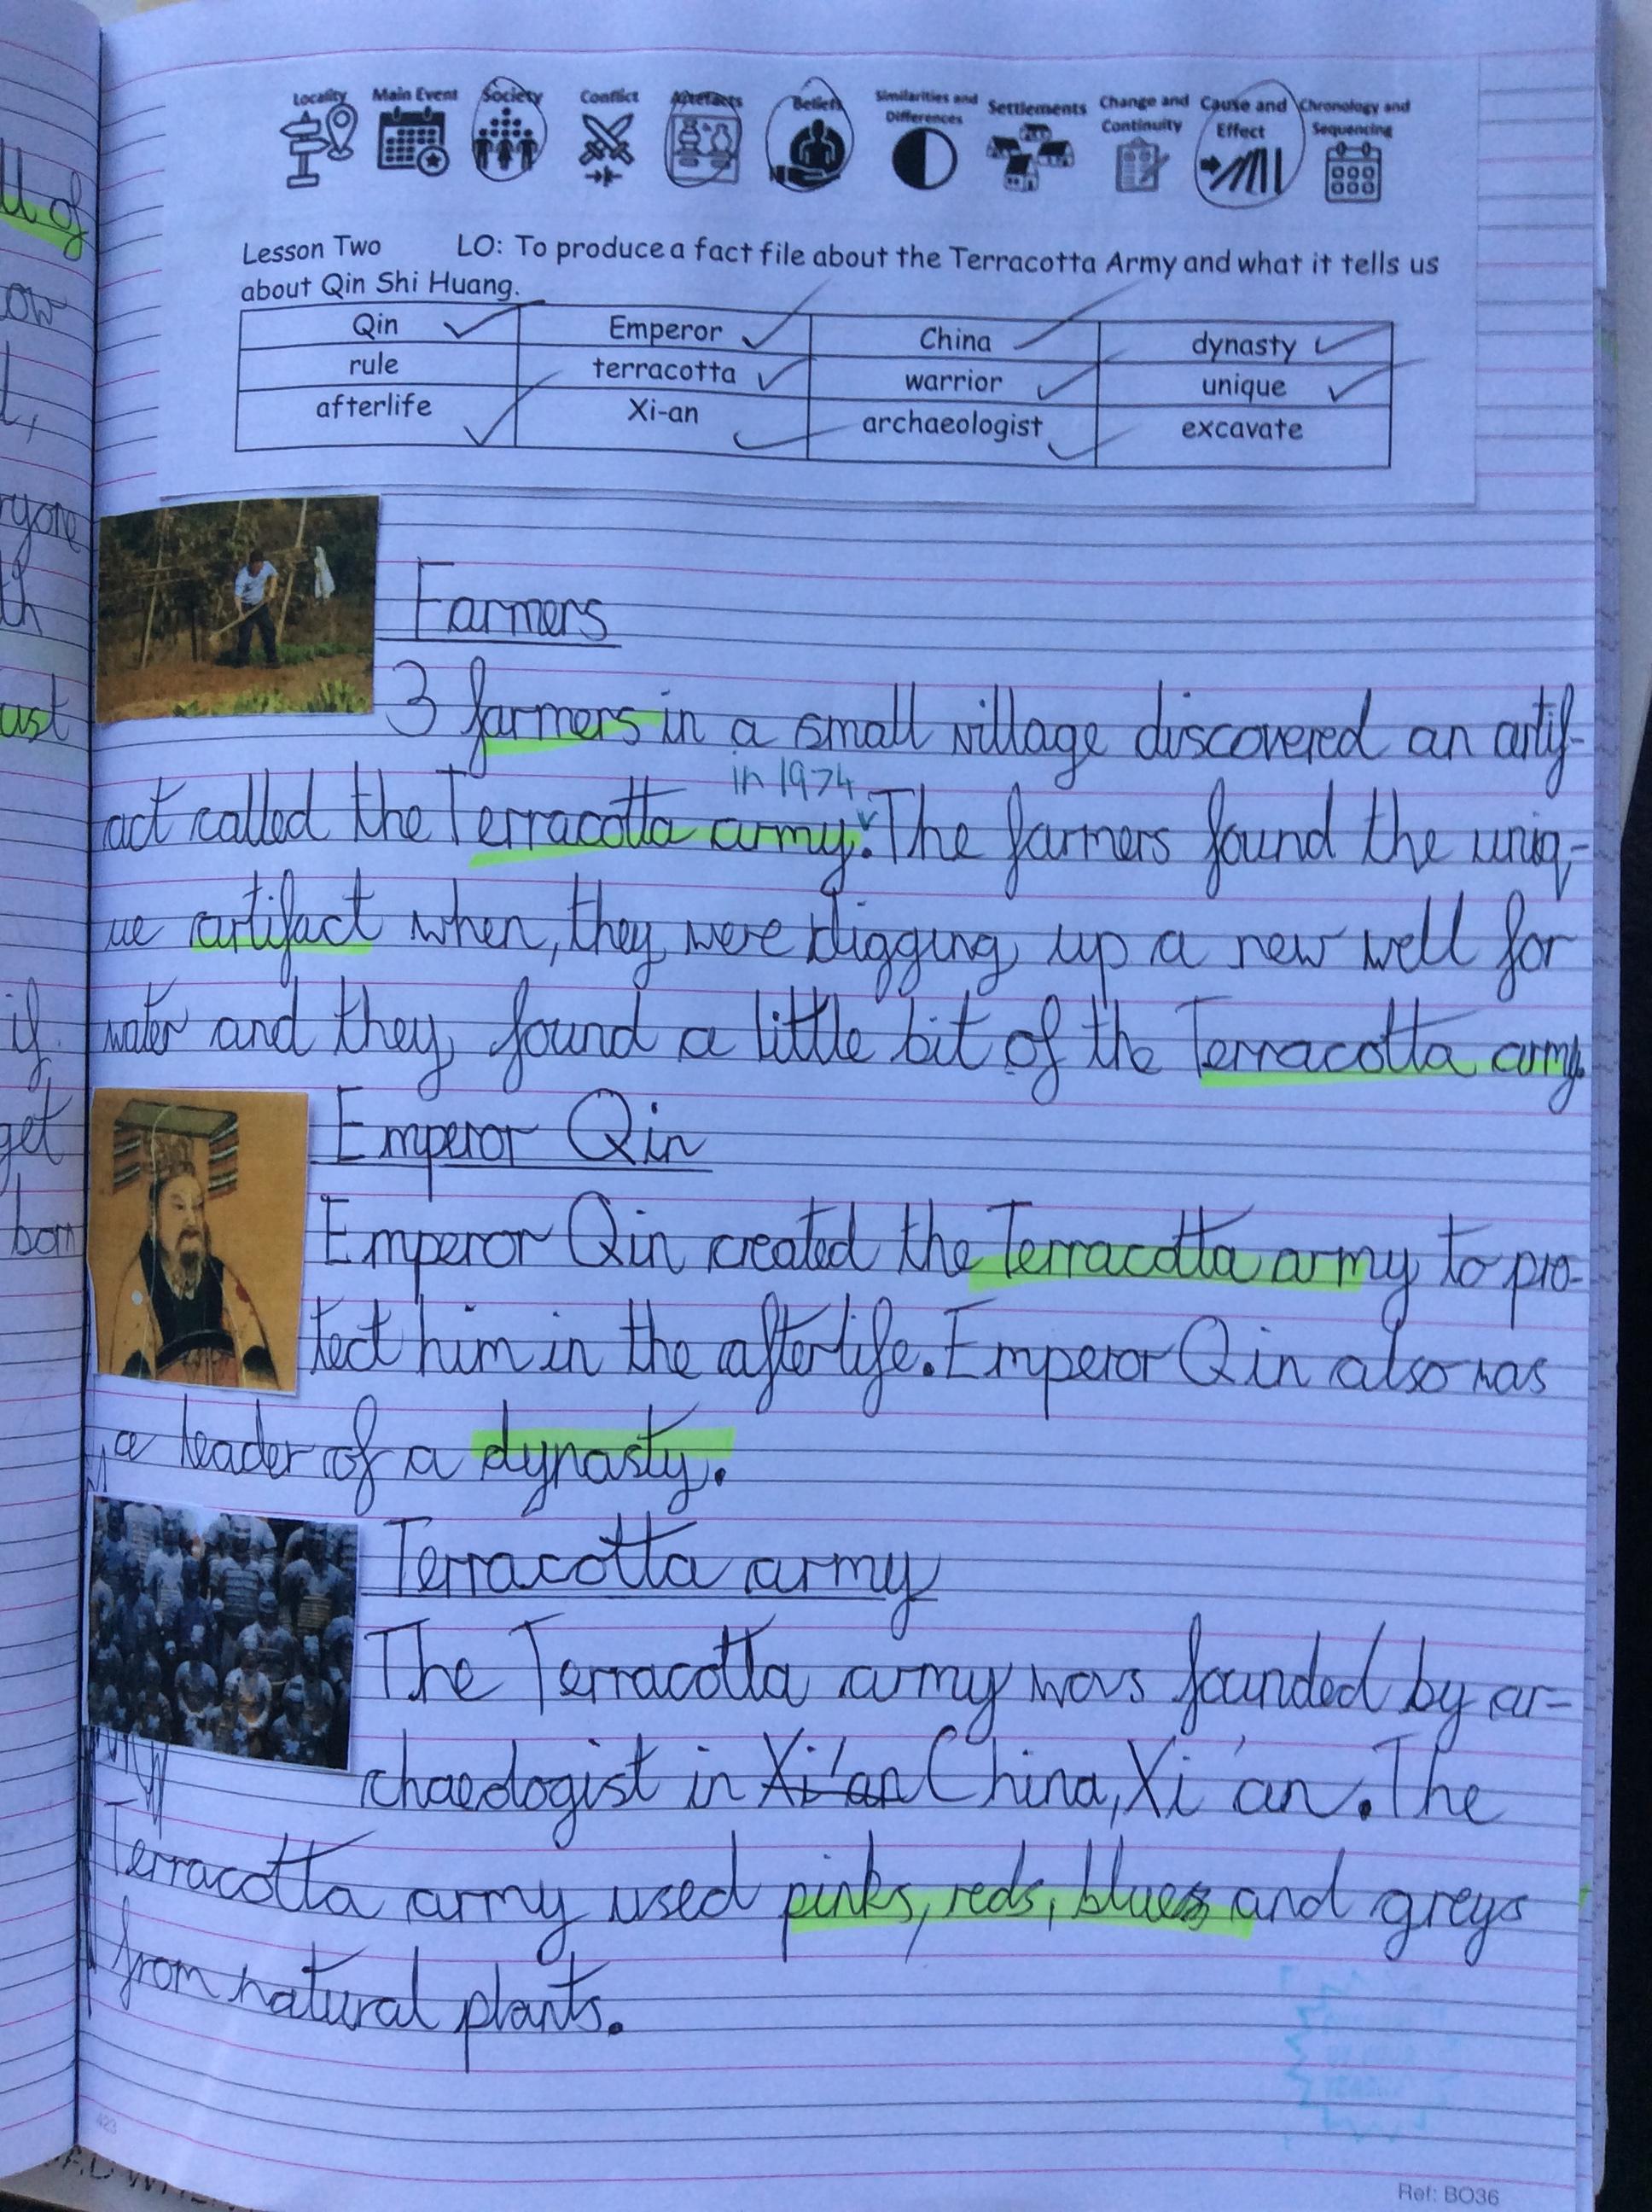 Locality Main Event Society Conflict Artefacts Beliefs Similarities and Differences Settlements Change and Continuity Cause and Effect Chronology and Sequencing
Lesson Two LO: To produce a fact file about the Terracotta Army and what it tells us
about Qin Shi Huang.
Qin Emperor China dynasty
rule terracotta warrior unique
afterlife Xi-an archaeologist excavate
Farmers
3 farmers in a small village discovered an artif-
in 1974
act called the Terracotta army. The farmers found the uniq-
ue artifact when, they were digging up a new well for
water and they found a little bit of the Terracotta army.
Emperor Qin
Emperor Qin created the Terracotta army to pro-
tect him in the afterlife. Emperor Qin also was
a leader of a dynasty.
Terracotta army
The Terracotta army was founded by ar-
chaeologist in Xi'an China, Xi'an. The
Terracotta army used pinks, reds, blues and greys
from natural plants.
423
Ref: BO36